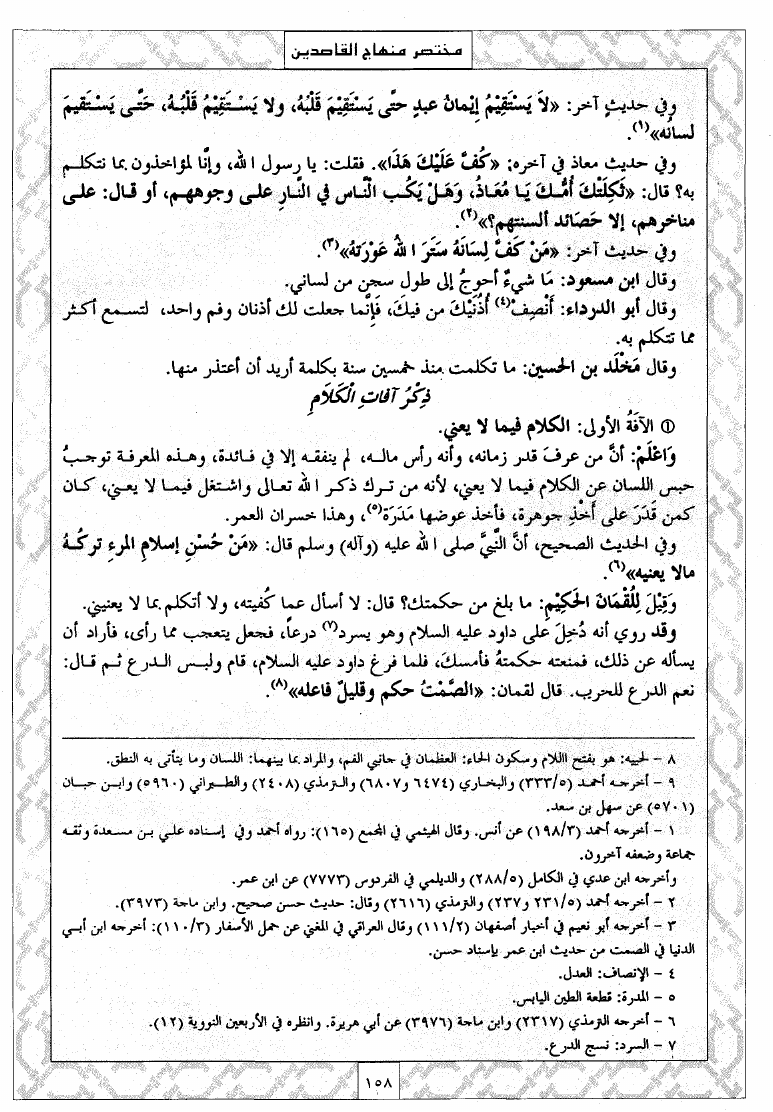 مختصر منهاج القاصدين
وفي حديثٍ آخر: «لاَ يَسْتَقِيْمُ إِيْمانُ عبدٍ حتَّى يَسْتَقِيْمَ قَلْبُهُ، ولا يَسْتَقِيْمُ قَلْبُهُ، حَتَّى يَسْتَقيمَ
لسانُه»(١).
وفي حديث معاذ في آخره: «كُفَّ عَلَيْكَ هَذَا». فقلت: يا رسول الله، وإنَّا لمؤاخذون بما نتكلم
به؟ قال: «ثَكِلَتْكَ أُمُّكَ يَا مُعَاذُ، وَهَلْ يَكُب النَّاس في النَّارِ على وجوههم، أو قال: على
مناخرهم، إلا حَصَائد ألسنتهم؟»(٢).
وفي حديث آخر: «مَنْ كَفَّ لِسَانَهُ سَتَرَ اللهُ عَوْرَتَهُ»(٣).
وقال ابن مسعود: مَا شيءٌ أحوجُ إلى طول سجن من لساني.
وقال أبو الدرداء: أَنْصِفْ(٤) أُذُنَيْكَ من فيكَ، فَإِنَّما جعلت لك أذنان وفم واحد، لتسمع أكثر
مما تتكلم به.
وقال مَخْلَد بن الحسين: ما تكلمت منذ خمسين سنة بكلمة أريد أن أعتذر منها.
ذِكْرُ آفاتِ الْكَلاَمِ
① الآفَةُ الأولى: الكلام فيما لا يعني.
وَاعْلَمْ: أنَّ من عرفَ قدر زمانه، وأنه رأس ماله، لم ينفقه إلا في فائدة، وهذه المعرفة توجبُ
حبس اللسان عن الكلام فيما لا يعني، لأنه من ترك ذكر الله تعالى واشتغل فيما لا يعني، كان
كمن قَدَرَ على أَخْذِ جوهرة، فأخذ عوضها مَدَرَة(٥)، وهذا خسران العمر.
وفي الحديث الصحيح، أنَّ النَّبيَّ صلى الله عليه (وآله) وسلم قال: «مَنْ حُسْنِ إسلامِ المرءِ تركُهُ
مالا يعنيه»(٦).
وَقِيْلَ لِلُقْمَانَ الحَكِيْمِ: ما بلغ من حكمتك؟ قال: لا أسأل عما كُفيته، ولا أتكلم بما لا يعنيني.
وقد روي أنه دُخِلَ على داود عليه السلام وهو يسرد(٧) درعاً، فجعل يتعجب مما رأى، فأراد أن
يسأله عن ذلك، فمنعته حكمتهُ فأمسكَ، فلما فرغ داود عليه السلام، قام ولبس الدرع ثم قال:
نعم الدرع للحرب. قال لقمان: «الصَّمْتُ حكم وقليلٌ فاعله»(٨).
٨ – لحييه: هو بفتح االلام وسكون الحاء: العظمان في جانبي الفم، والمراد بما بينهما: اللسان وما يتأتى به النطق.
٩ – أخرجه أحمد (٣٣٣/٥) والبخاري (٦٤٧٤ و٦٨٠٧) والترمذي (٢٤٠٨) والطبراني (٥٩٦٠) وابن حبان
(٥٧٠١) عن سهل بن سعد.
١ – أخرجه أحمد (١٩٨/٣) عن أنس. وقال الهيثمي في المجمع (١٦٥): رواه أحمد وفي إسناده علي بن مسعدة وثقه
جماعة وضعفه آخرون.
وأخرجه ابن عدي في الكامل (٢٨٨/٥) والديلمي في الفردوس (٧٧٧٣) عن ابن عمر.
٢ – أخرجه أحمد (٢٣١/٥ و٢٣٧) والترمذي (٢٦١٦) وقال: حديث حسن صحيح. وابن ماجة (٣٩٧٣).
٣ – أخرجه أبو نعيم في أخبار أصفهان (١١١/٢) وقال العراقي في المغني عن حمل الأسفار (١١٠/٣): أخرجه ابن أبي
الدنيا في الصمت من حديث ابن عمر بإسناد حسن.
٤ – الإنصاف: العدل.
٥ – المدرة: قطعة الطين اليابس.
٦ – أخرجه الترمذي (٢٣١٧) وابن ماجة (٣٩٧٦) عن أبي هريرة. وانظره في الأربعين النووية (١٢).
٧ – السرد: نسج الدرع.
١٥٨